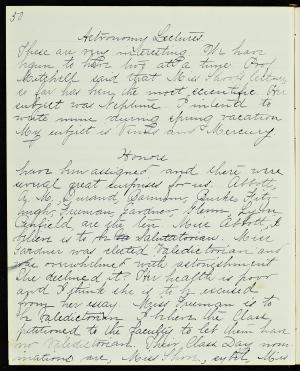 50
Astronomy Lectures.
These are very interesting. We have
begun to have two at a time. Prof.
Mitchell said that Miss Shove's lecture
so far has been the most scientific. Her
subject was Neptune. I intend to
write mine during spring vacation
My subject is Venus and Mercury.
Honors
have been assigned and there were
several great surprises for us. Abbott,
A. M., Durand, Barnum, Burke, Fitz-
hugh, Freeman, Gardner, Glenn, Lyon
Canfield, are the ten. Miss Abbott, I
believe is to be Salutatorian. Miss
Gardner was elected Valedictorian and
was overwhelmed with astonishment
She declined it. Her health is poor
and I think she is to be excused
from her essay. Miss Freeman is to
be Valedictorian. I believe the Class
petitioned to the Faculty to let them have
no Valedictorian. Their Class Day nom-
inations are, Miss Shove, Miss